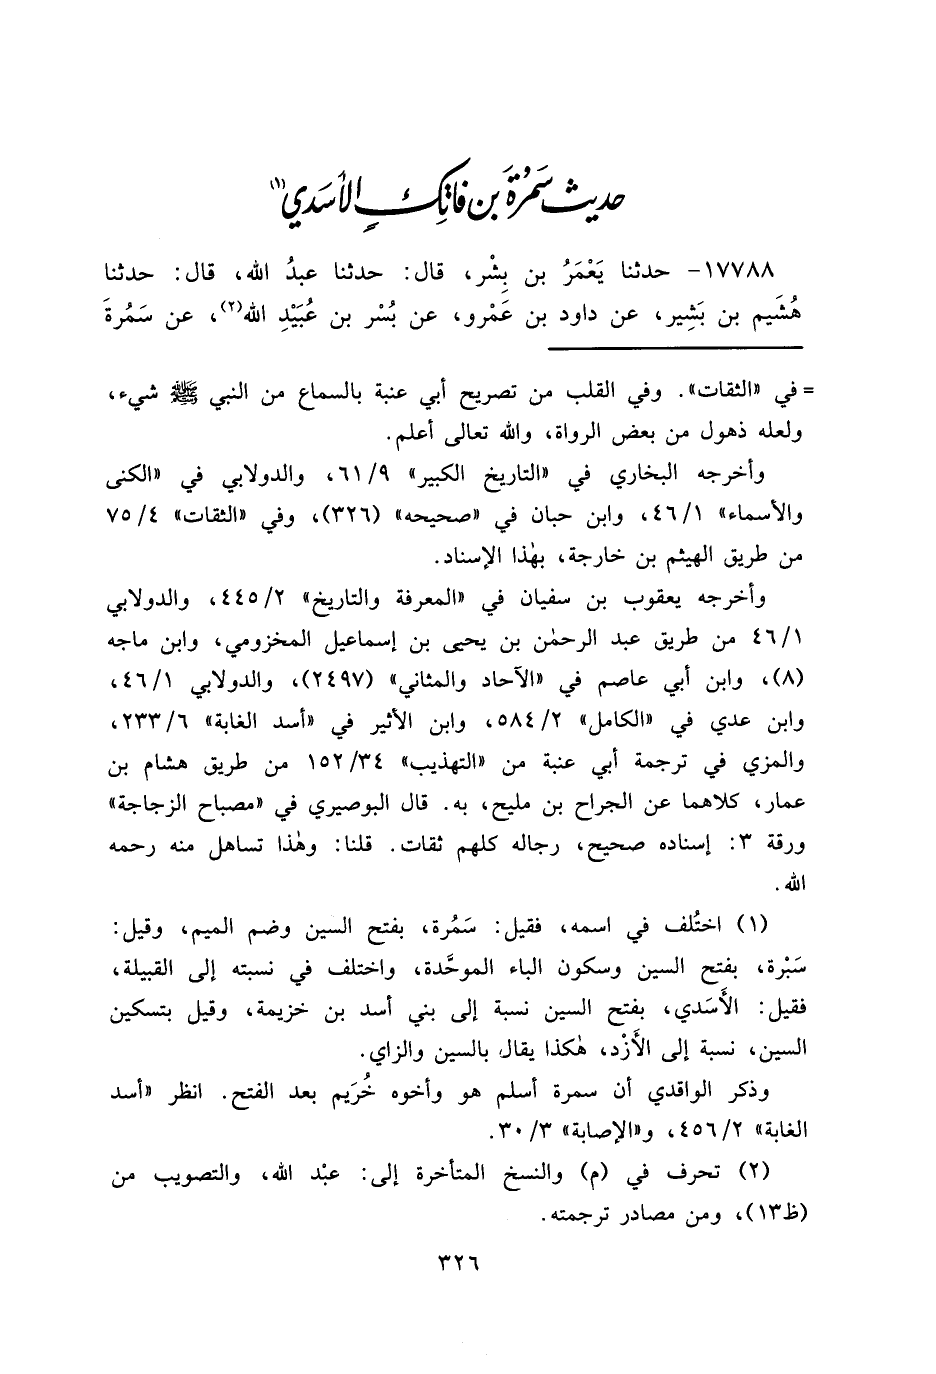 حديث سَمُرَة بن فاتِك الأسَدي(١)
١٧٧٨٨- حدثنا يَعْمَرُ بن بِشْر، قال: حدثنا عبدُ الله، قال: حدثنا
هُشَيم بن بَشِير، عن داود بن عَمْرو، عن بُسْر بن عُبَيْدِ الله(٢)، عن سَمُرةَ
= في «الثقات». وفي القلب من تصريح أبي عنبة بالسماع من النبي ﷺ شيء،
ولعله ذهول من بعض الرواة، والله تعالى أعلم.
وأخرجه البخاري في «التاريخ الكبير» ٦١/٩، والدولابي في «الكنى
والأسماء» ٤٦/١، وابن حبان في «صحيحه» (٣٢٦)، وفي «الثقات» ٧٥/٤
من طريق الهيثم بن خارجة، بهٰذا الإسناد.
وأخرجه يعقوب بن سفيان في «المعرفة والتاريخ» ٤٤٥/٢، والدولابي
٤٦/١ من طريق عبد الرحمٰن بن يحيى بن إسماعيل المخزومي، وابن ماجه
(٨)، وابن أبي عاصم في «الآحاد والمثاني» (٢٤٩٧)، والدولابي ٤٦/١،
وابن عدي في «الكامل» ٥٨٤/٢، وابن الأثير في «أسد الغابة» ٢٣٣/٦،
والمزي في ترجمة أبي عنبة من «التهذيب» ١٥٢/٣٤ من طريق هشام بن
عمار، كلاهما عن الجراح بن مليح، به. قال البوصيري في «مصباح الزجاجة»
ورقة ٣: إسناده صحيح، رجاله كلهم ثقات. قلنا: وهٰذا تساهل منه رحمه
الله.
(١) اختُلف في اسمه، فقيل: سَمُرة، بفتح السين وضم الميم، وقيل:
سَبْرة، بفتح السين وسكون الباء الموحَّدة، واختلف في نسبته إلى القبيلة،
فقيل: الأَسَدي، بفتح السين نسبة إلى بني أسد بن خزيمة، وقيل بتسكين
السين، نسبة إلى الأَزْد، هٰكذا يقال بالسين والزاي.
وذكر الواقدي أن سمرة أسلم هو وأخوه خُرَيم بعد الفتح. انظر «أسد
الغابة» ٤٥٦/٢، و«الإصابة» ٣٠/٣.
(٢) تحرف في (م) والنسخ المتأخرة إلى: عبْد الله، والتصويب من
(ظ١٣)، ومن مصادر ترجمته.
٣٢٦